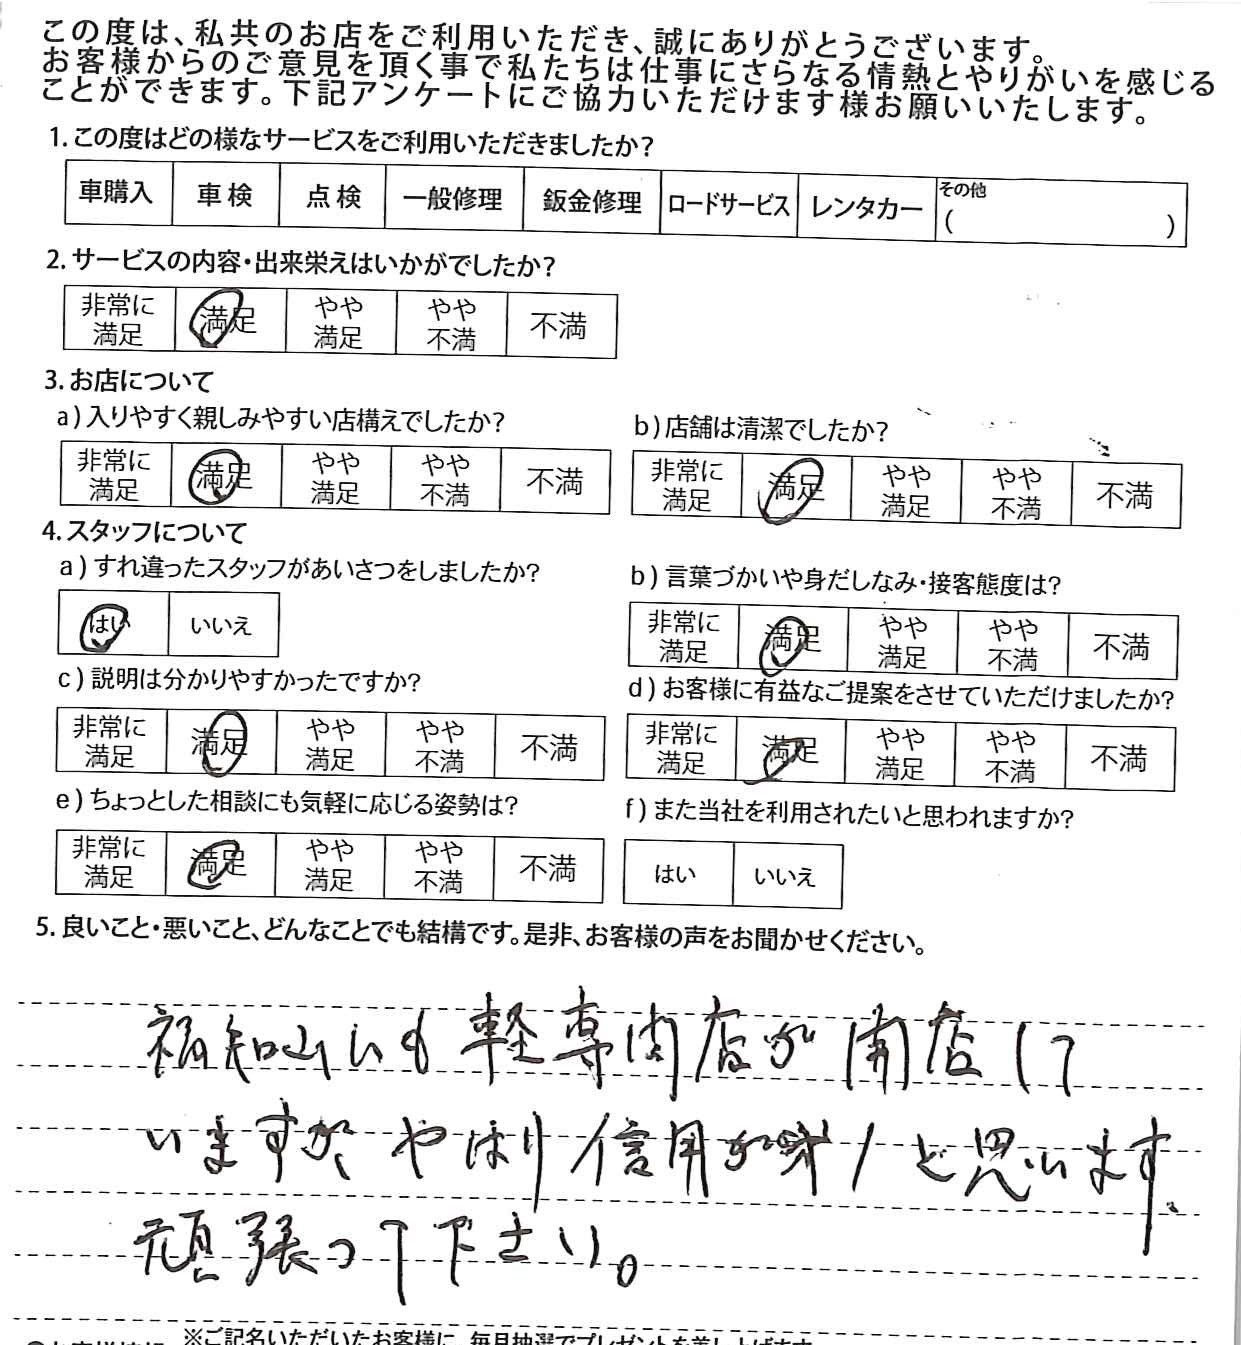 この度は、私共のお店をご利用いただき、誠にありがとうございます。
お客様からのご意見を頂く事で私たちは仕事にさらなる情熱とやりがいを感じる
ことができます。下記アンケートにご協力いただけます様お願いいたします。
1.この度はどの様なサービスをご利用いただきましたか?
車購入 車検 点検 一般修理 鈑金修理 ロードサービス レンタカー その他 ( )
2.サービスの内容・出来栄えはいかがでしたか?
非常に満足 満足 やや満足 やや不満 不満
3.お店について
a)入りやすく親しみやすい店構えでしたか?
非常に満足 満足 やや満足 やや不満 不満
b)店舗は清潔でしたか?
非常に満足 満足 やや満足 やや不満 不満
4.スタッフについて
a)すれ違ったスタッフがあいさつをしましたか?
はい いいえ
b)言葉づかいや身だしなみ・接客態度は?
非常に満足 満足 やや満足 やや不満 不満
c)説明は分かりやすかったですか?
非常に満足 満足 やや満足 やや不満 不満
d)お客様に有益なご提案をさせていただけましたか?
非常に満足 満足 やや満足 やや不満 不満
e)ちょっとした相談にも気軽に応じる姿勢は?
非常に満足 満足 やや満足 やや不満 不満
f)また当社を利用されたいと思われますか?
はい いいえ
5.良いこと・悪いこと、どんなことでも結構です。是非、お客様の声をお聞かせください。
福知山にも軽専門店が開店して
いますが、やはり信用が第1と思います、
頑張って下さい。
※ご記名いただいたお客様に、毎月抽選でプレゼントを差し上げます